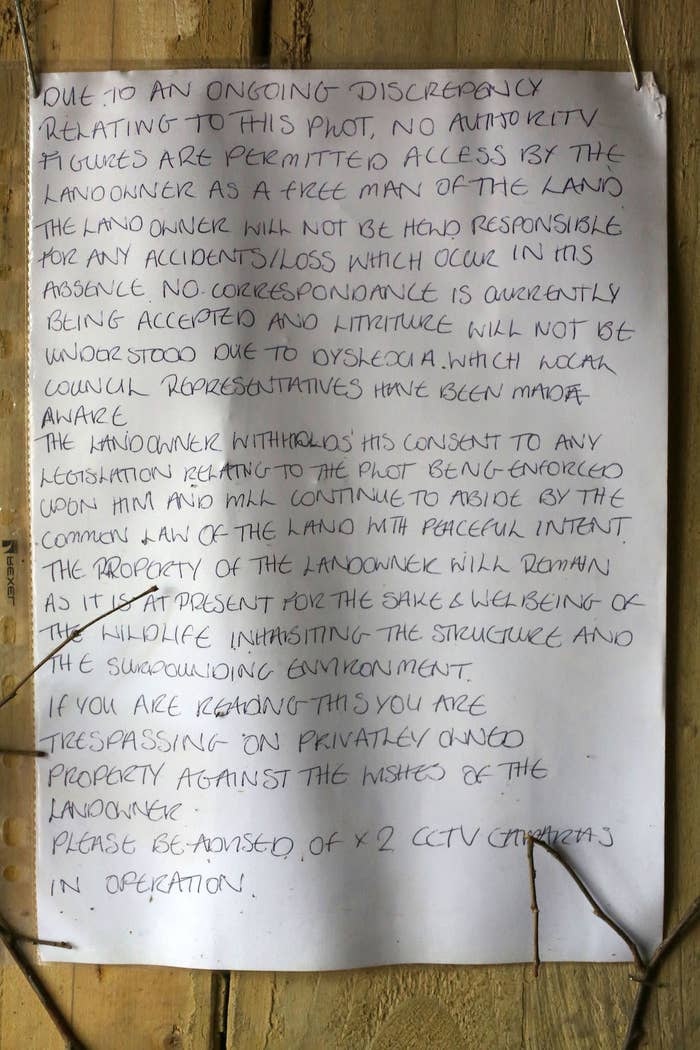 DUE TO AN ONGOING DISCREPENCY
RELATING TO THIS PLOT, NO AUTHORITY
FIGURES ARE PERMITTED ACCESS BY THE
LANDOWNER AS A FREE MAN OF THE LAND
THE LAND OWNER WILL NOT BE HELD RESPONSIBLE
FOR ANY ACCIDENTS/LOSS WHICH OCCUR IN HIS
ABSENCE. NO. CORRESPONDANCE IS CURRENTLY
BEING ACCEPTED AND LITRITURE WILL NOT BE
UNDERSTOOD DUE TO DYSLEXIA. WHICH LOCAL
COUNCIL REPRESENTATIVES HAVE BEEN MADE
AWARE
THE LANDOWNER WITHHOLDS HIS CONSENT TO ANY
LEGISLATION RELATING TO THE PLOT BEING ENFORCED
UPON HIM AND WILL CONTINUE TO ABIDE BY THE
COMMON LAW OF THE LAND WITH PEACEFUL INTENT.
THE PROPERTY OF THE LANDOWNER WILL REMAIN
AS IT IS AT PRESENT FOR THE SAKE & WELBEING OF
THE WILDLIFE INHABITING THE STRUCTURE AND
THE SURROUNDING ENVIRONMENT.
IF YOU ARE READING THIS YOU ARE
TRESPASSING ON PRIVATLEY OWNED
PROPERTY AGAINST THE WISHES OF THE
LANDOWNER.
PLEASE BE ADVISED OF X 2 CCTV CAMARAS
IN OPERATION.
REXEL